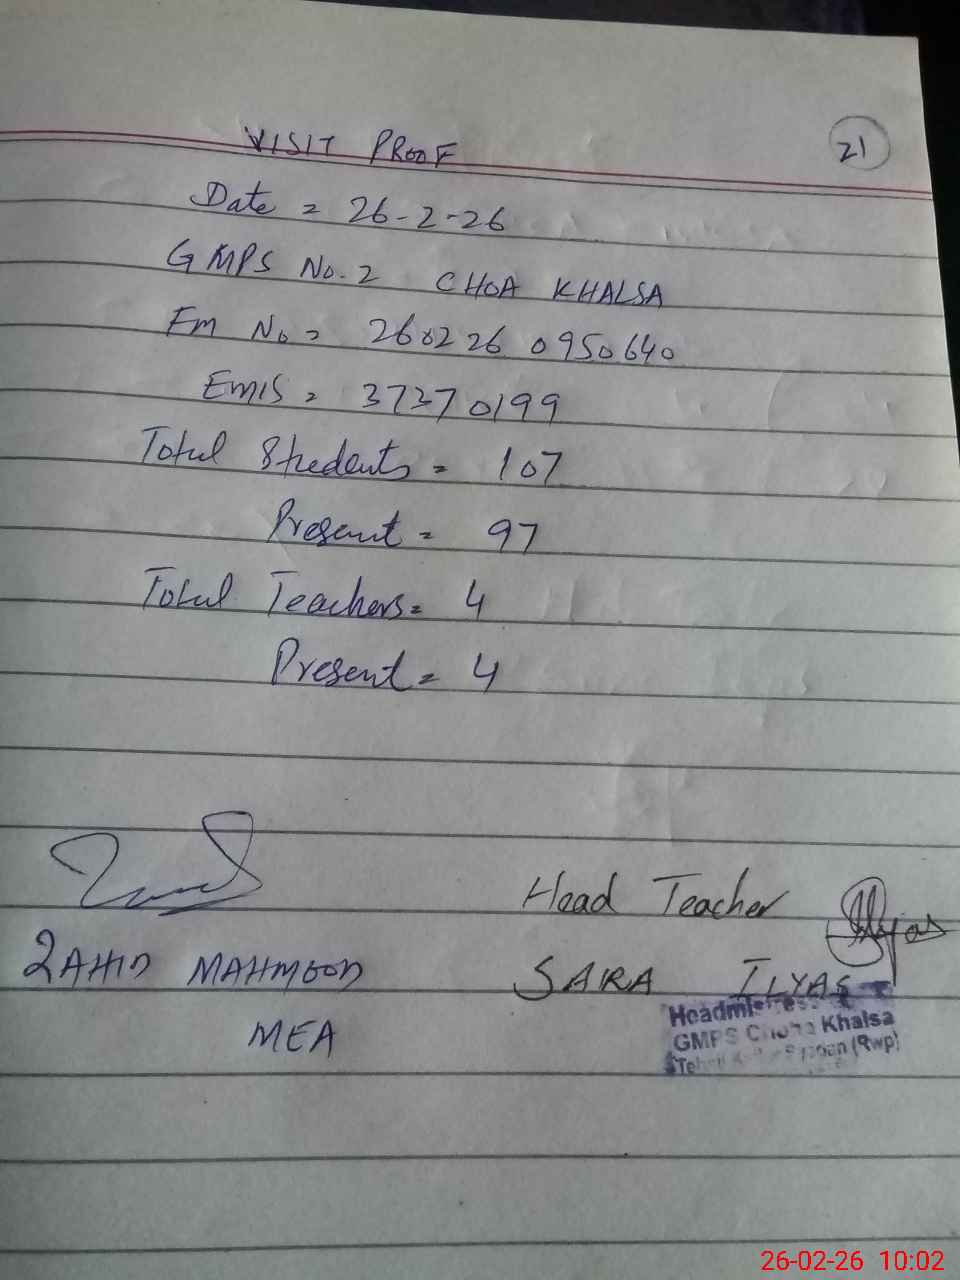 21
VISIT PROOF
Date = 26-2-26
GMPS No. 2 CHOA KHALSA
Em No = 260226 0950640
EMIS = 37370199
Total Students = 107
Present = 97
Total Teachers = 4
Present = 4
Head Teacher
ZAHID MAHMOOD
SARA ILYAS
MEA
Headmistress
GMPS Khalsa
(Rwp)
26-02-26 10:02